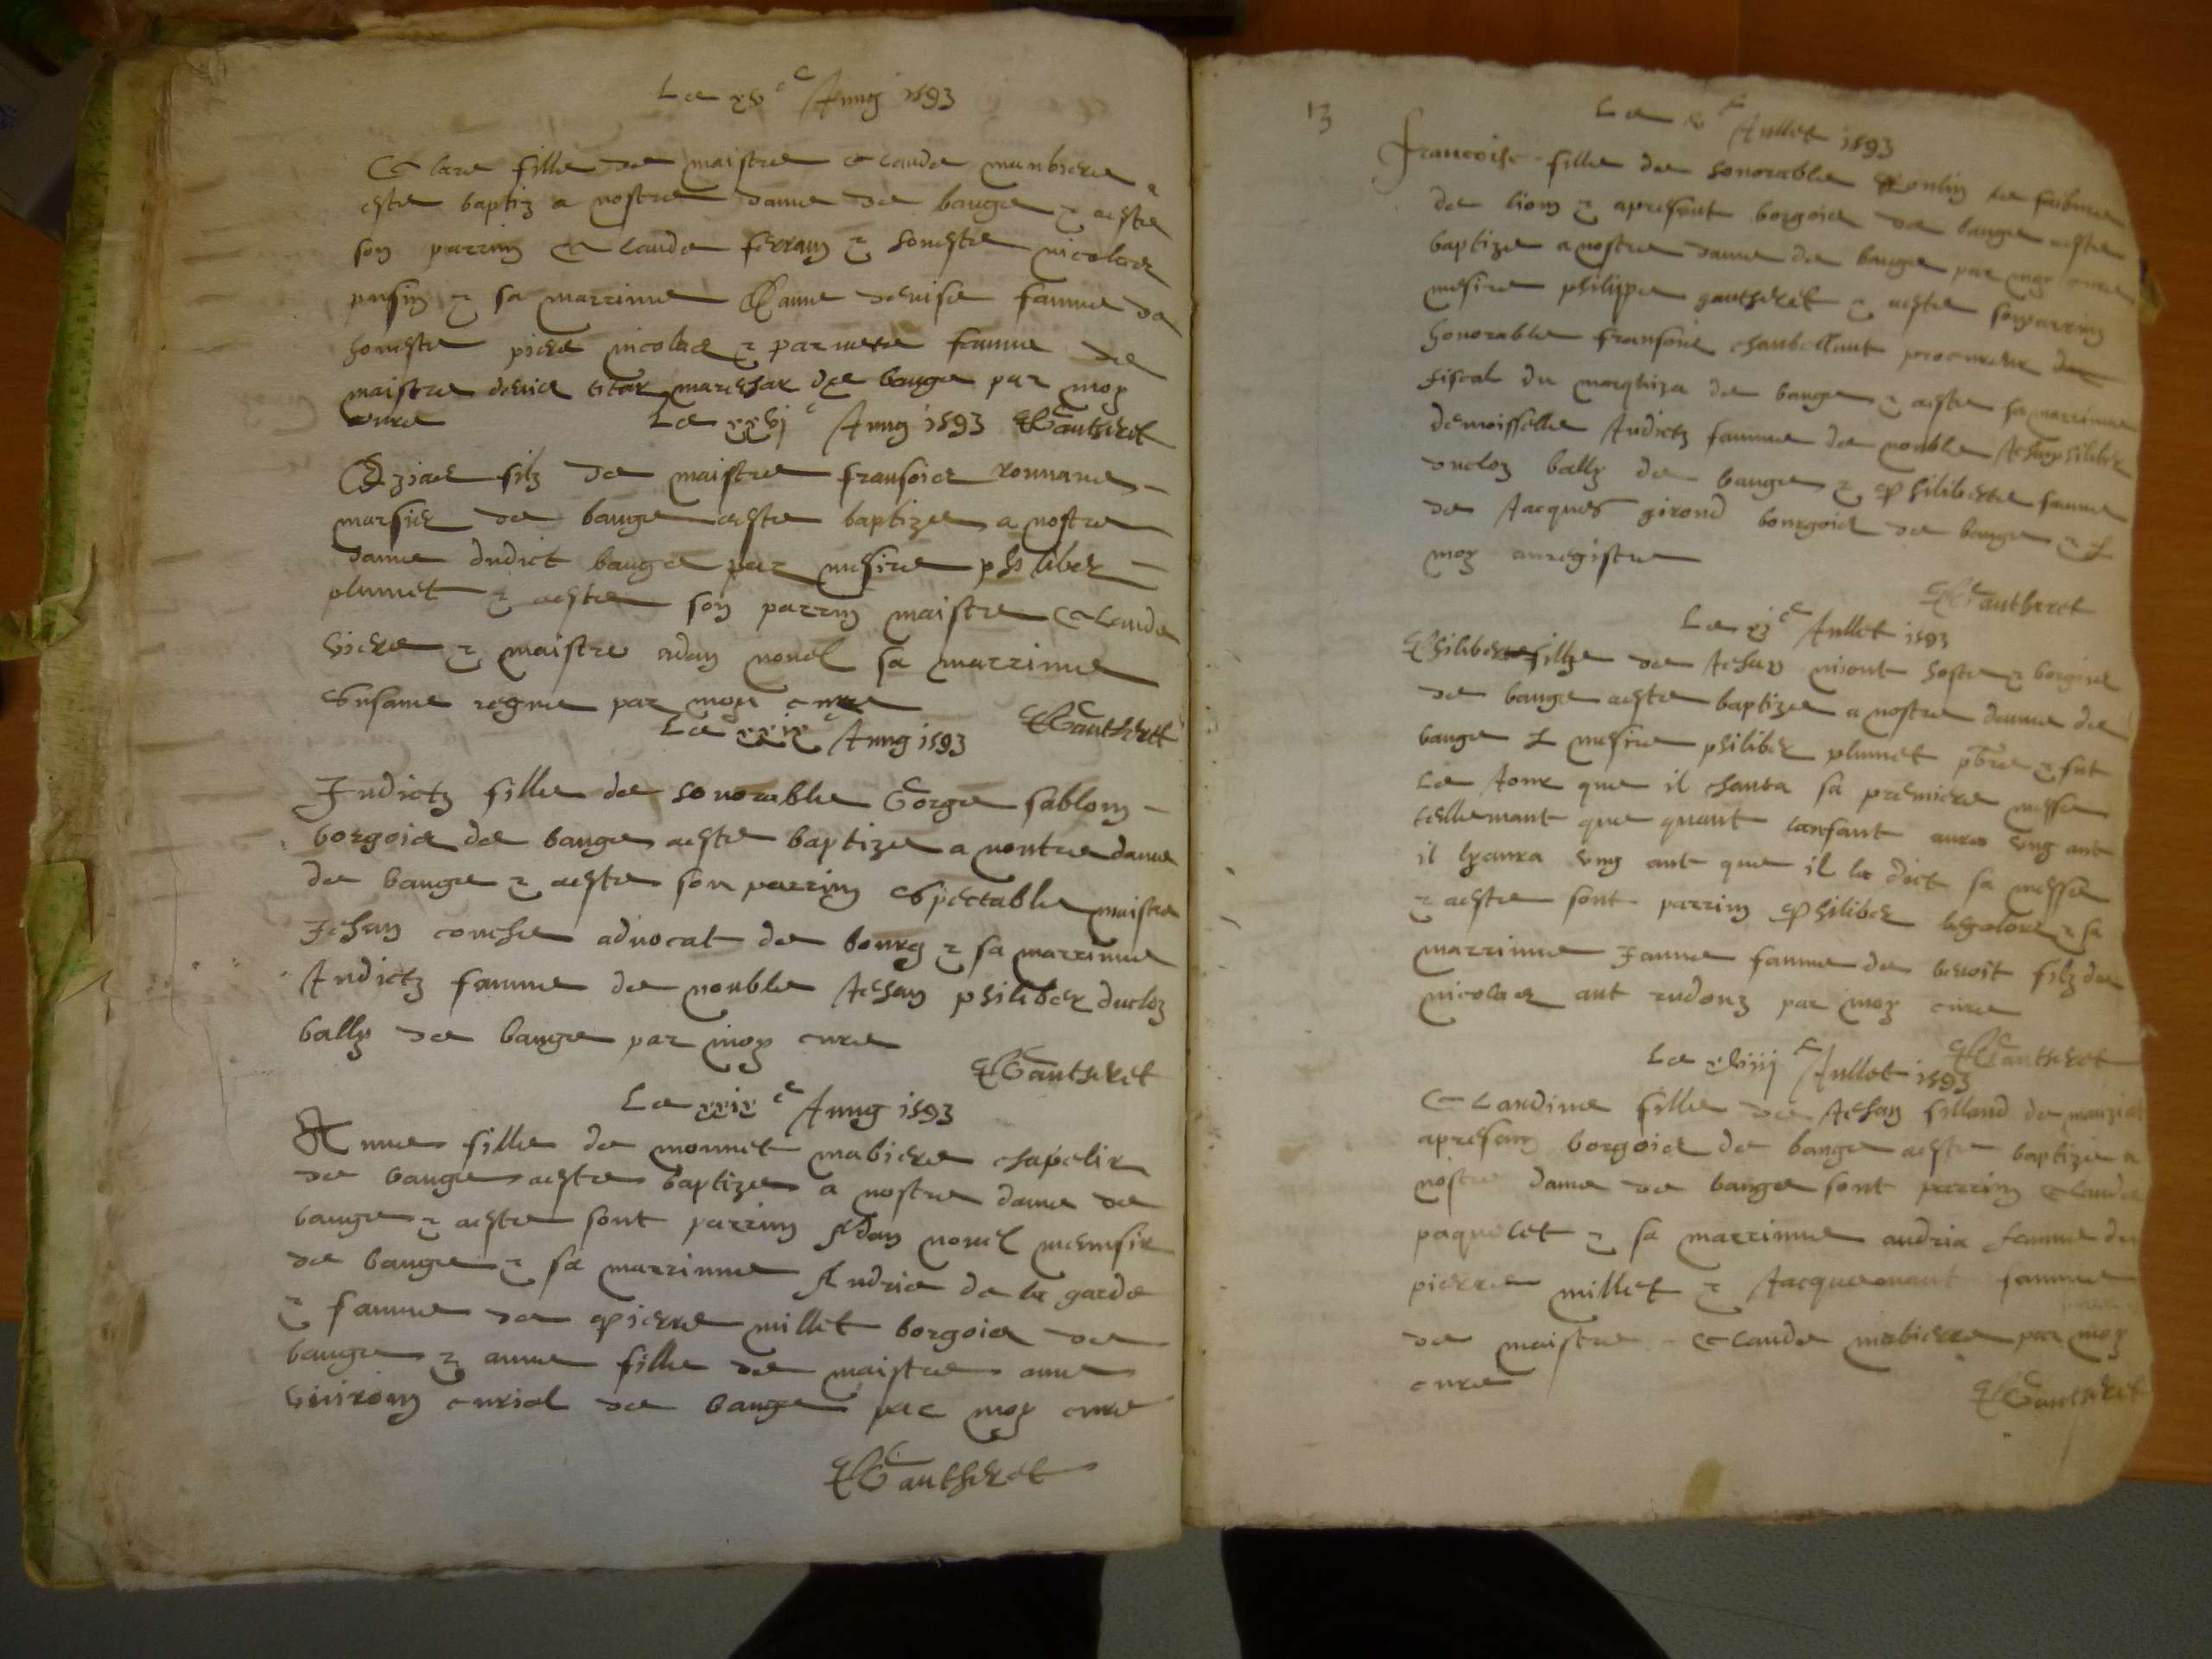 Le xv e Juing 1593
Clare fille de maistre Claude munbiere a
este baptiz a nostre dame de bauge & aeste
son parrin Claude ferrain & honeste nicolaz
pusin & sa marrinne Janne denise famme de
honeste piere nicolaz & parnete famme de
maistre denis titar mareschar de bauge par moy
cure Le xxvj e Juing 1593 PGautheret
filz de maistre fransoies
marsier de bauge aeste baptize a nostre
dame dudict bauge par mesire philiber
plumet & aeste son parrin maistre Claude
viere & maistre adan nouel sa marrinne
Susanne regnie par moy cure
PGautheret
Le xxix e Juing 1593
Judictz fille de honorable George sablon
borgois de bauge aeste baptize a nontre dame
de bauge & aeste son parrin Spectable maistre
Jehan couche advocat de bourg & sa marrinne
Judictz famme de nouble Jehan philiber ducloz
bally de bauge par moy cure
PGautheret
Le xxix e Juing 1593
Anne fille de monnet mubiere chapelir
de bauge aeste baptize a nostre dame de
bauge & aeste sont parrin Adan nouel menusir
de bauge & sa marrinne Andrie de la garde
& famme de pierre millet borgois de
bauge & anne fille de maistre anne
vivron curial de bauge par moy cure
PGautheret
13
Le v e Jullet 1593
Francoise fille de honorable
de lion & apresant borgois de bauge aeste
baptize a nostre dame de bauge par moy cure
mesire philippe gautheret & aeste son parrin
honorable fransoies chanbellant procureur
fiscal du marquiza de bauge & aeste sa marrinne
demoisselle Judictz famme de nouble Jehan philiber
ducloz bally de bauge & philiberte famme
de Jacques girond bourgois de bauge &
moy anregistre
PGautheret
Le xj e Jullet 1593
Philiberte fille de Jehan niont hoste & borgois
de bauge aeste baptize a nostre dame de
bauge mesire philiber plumet pbre & fut
Le Jour que il chanta sa premiere messe
tellemant que quant lanfant aura ung ant
il lyaura ung ant que il la dict sa messe
& aeste sont parrin Philiber & sa
marrinne Janne famme de benoit filz de
nicolaz ant rudonz par moy cure
PGautheret
Le xviij e Jullet 1593
Claudine fille de Jehan silland de marziat
apresant borgois de bauge aeste baptize a
nostre dame de bauge sont parrin Claude
paquelet & sa marrinne andria famme de
pierre millet & Jacquemant famme
de maistre Claude mubiere par moy
cure
PGautheret